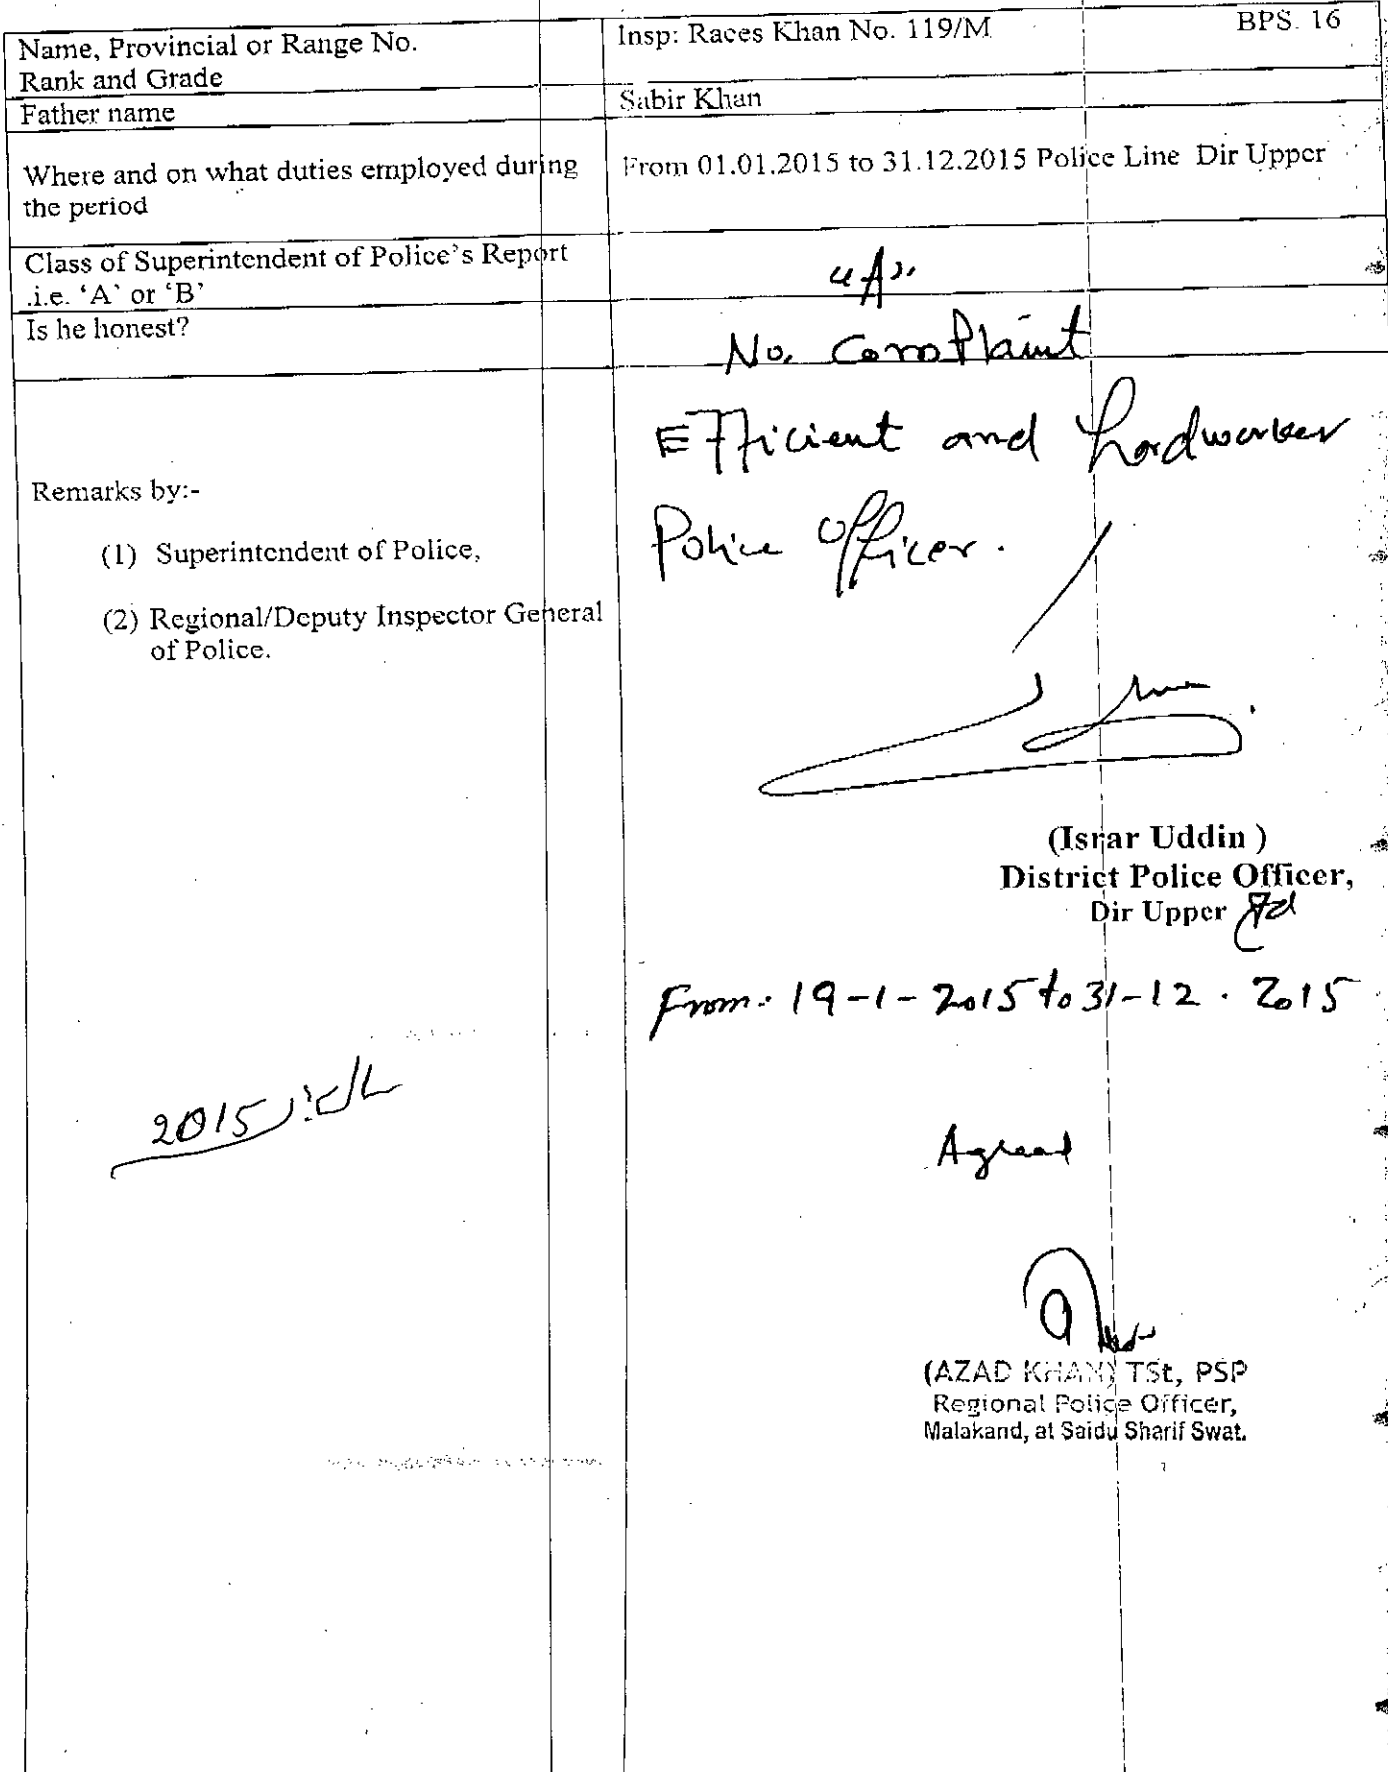 Name, Provincial or Range No.
Rank and Grade
Insp: Raees Khan No. 119/M BPS. 16
Father name
Sabir Khan
Where and on what duties employed during
the period
From 01.01.2015 to 31.12.2015 Police Line Dir Upper
Class of Superintendent of Police's Report
.i.e. 'A' or 'B'
"A"
Is he honest?
No. Complaint
Remarks by:-
(1) Superintendent of Police,
(2) Regional/Deputy Inspector General
of Police.
Efficient and hardworker
Police Officer.
(Israr Uddin )
District Police Officer,
Dir Upper
From: 19-1-2015 to 31-12. 2015
2015
Agreed
(AZAD KHAN) TSt, PSP
Regional Police Officer,
Malakand, at Saidu Sharif Swat.